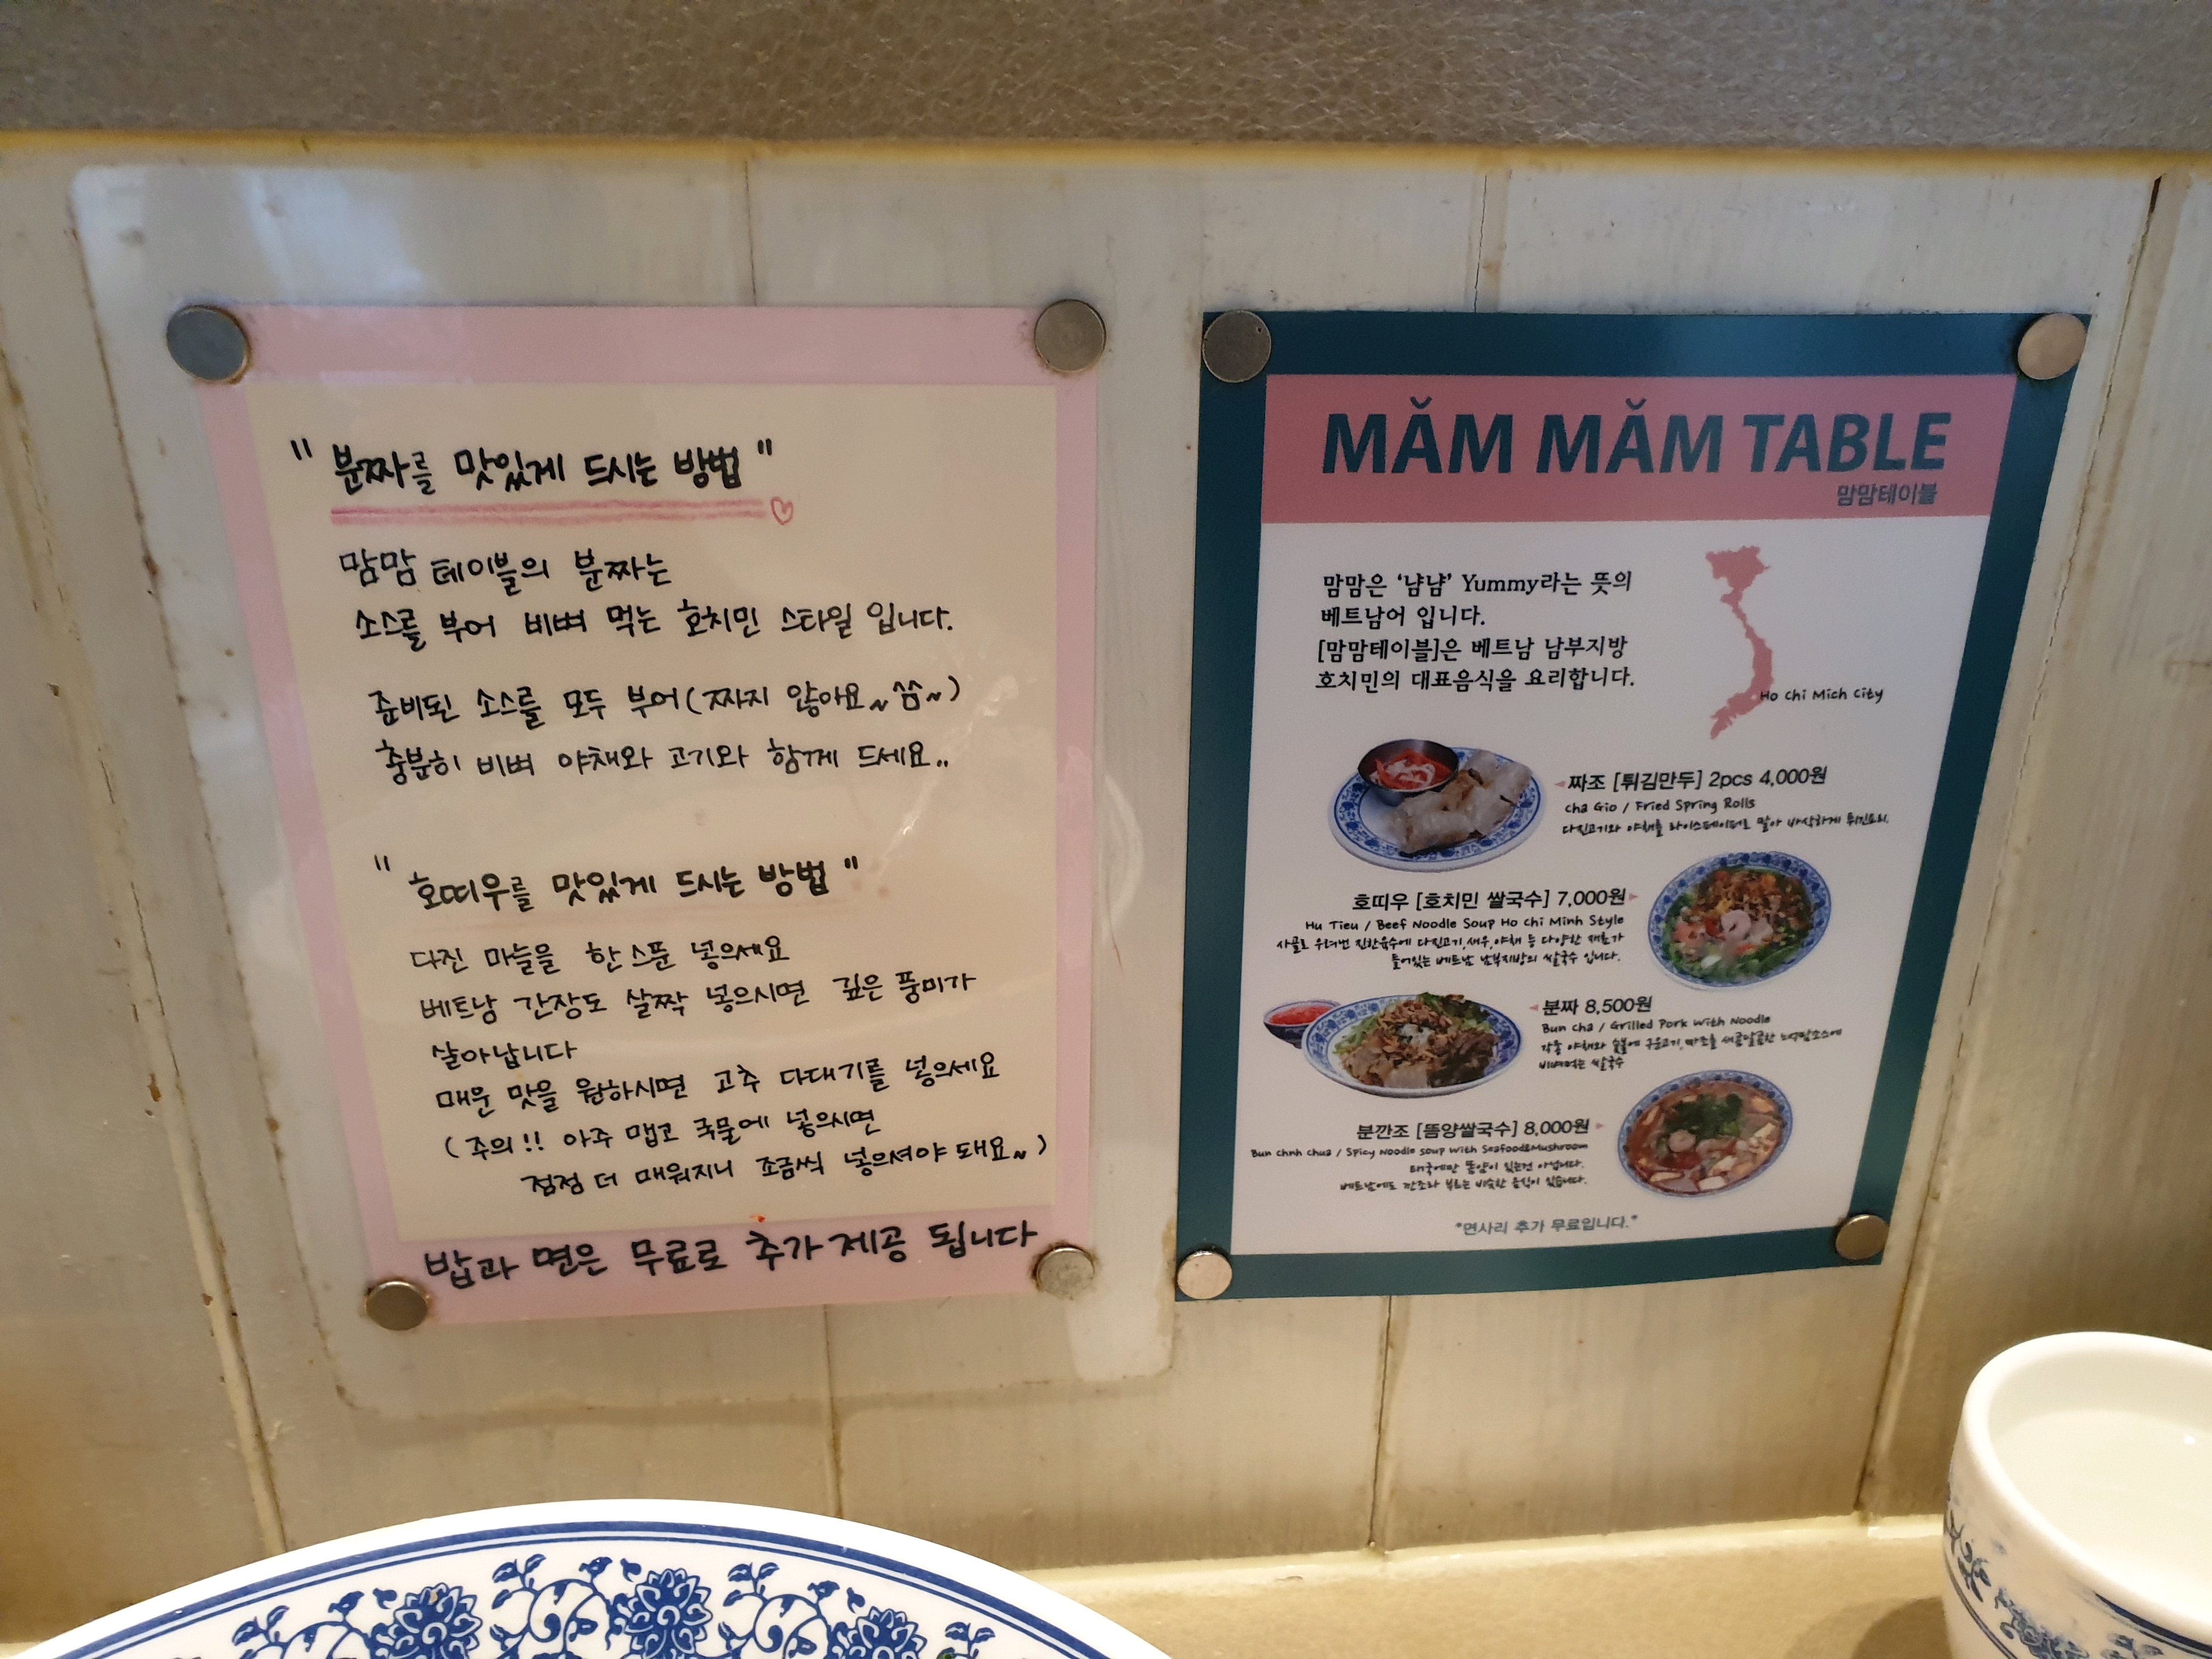 " 분짜를 맛있게 드시는 방법 "
맘맘 테이블의 분짜는
소스를 부어 비벼 먹는 호치민 스타일 입니다.
준비된 소스를 모두 부어(짜지 않아요~^^~)
충분히 비벼 야채와 고기와 함께 드세요..
" 호띠우를 맛있게 드시는 방법 "
다진 마늘을 한 스푼 넣으세요
베트남 간장도 살짝 넣으시면 깊은 풍미가
살아납니다
매운 맛을 원하시면 고추 다대기를 넣으세요
(주의!! 아주 맵고 국물에 넣으시면
점점 더 매워지니 조금씩 넣으셔야 돼요~)
밥과 면은 무료로 추가 제공 됩니다
MĂM MĂM TABLE
맘맘테이블
맘맘은 '냠냠' Yummy라는 뜻의
베트남어 입니다.
[맘맘테이블]은 베트남 남부지방
호치민의 대표음식을 요리합니다.
Ho Chi Mich City
짜조 [튀김만두] 2pcs 4,000원
Cha Gio / Fried Spring Rolls
다진고기와 야채를 라이스페이퍼로 말아 바삭하게 튀긴요리.
호띠우 [호치민 쌀국수] 7,000원
Hu Tieu / Beef Noodle Soup Ho Chi Minh Style
사골로 우려낸 진한육수에 다진고기,새우,야채 등 다양한 재료가
들어있는 베트남 남부지방의 쌀국수 입니다.
분짜 8,500원
Bun Cha / Grilled Pork With Noodle
각종 야채와 숯불에 구운고기, 짜조를 새콤달콤한 느억맘소스에
비벼먹는 쌀국수
분깐조 [뜸양쌀국수] 8,000원
Bun Chnh Chua / Spicy Noodle Soup With Seafood&Mushroom
태국에만 똠양이 있는건 아닙니다.
베트남에도 깐조라 부르는 비슷한 음식이 있습니다.
"면사리 추가 무료입니다."